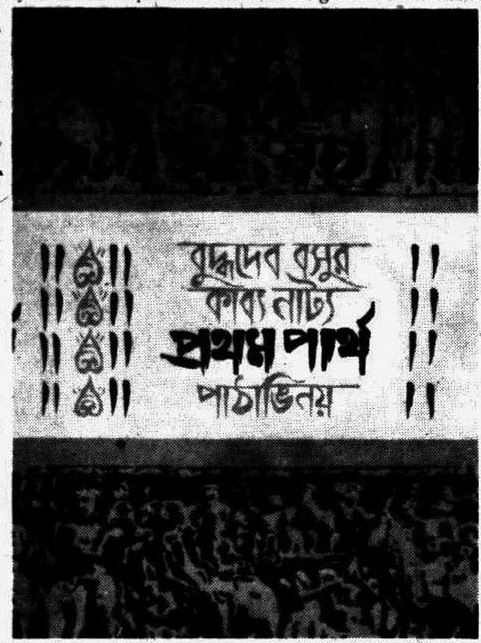 বুদ্ধদেব বসুর
কাব্য নাট্য
প্রথম পার্থ
পাঠাভিনয়